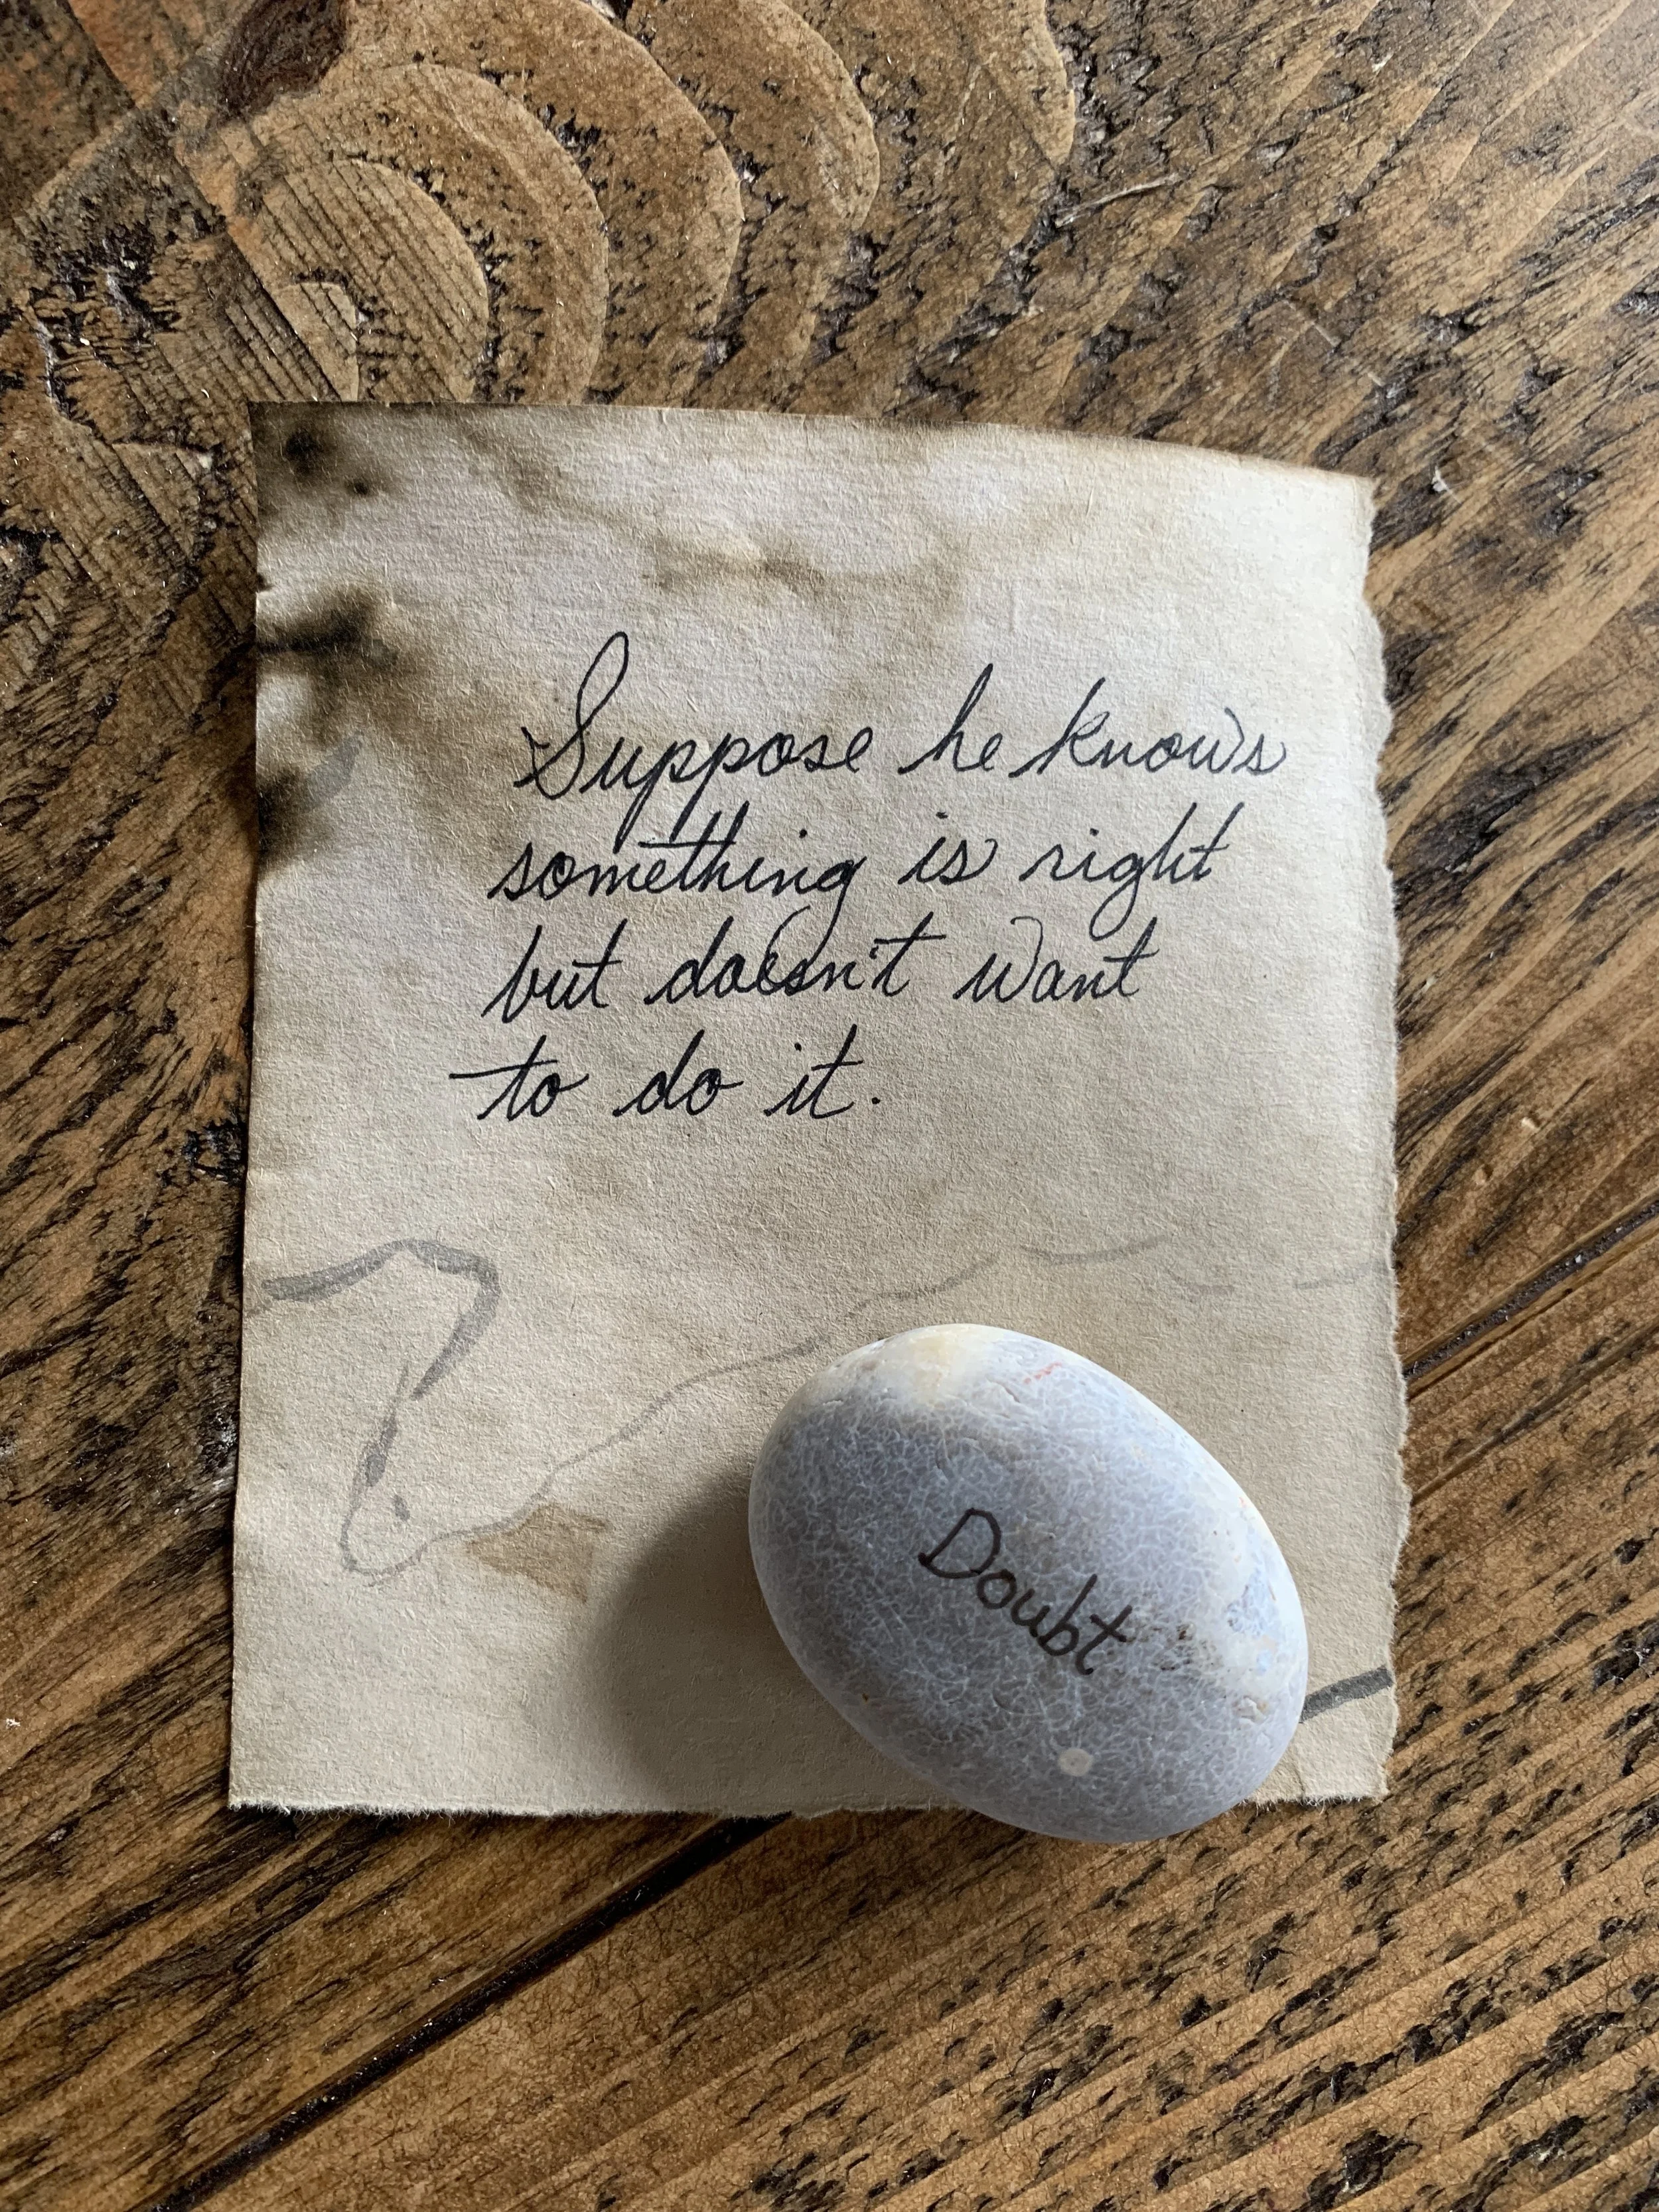 Suppose he knows
something is right
but doesn't want
to do it.
Doubt